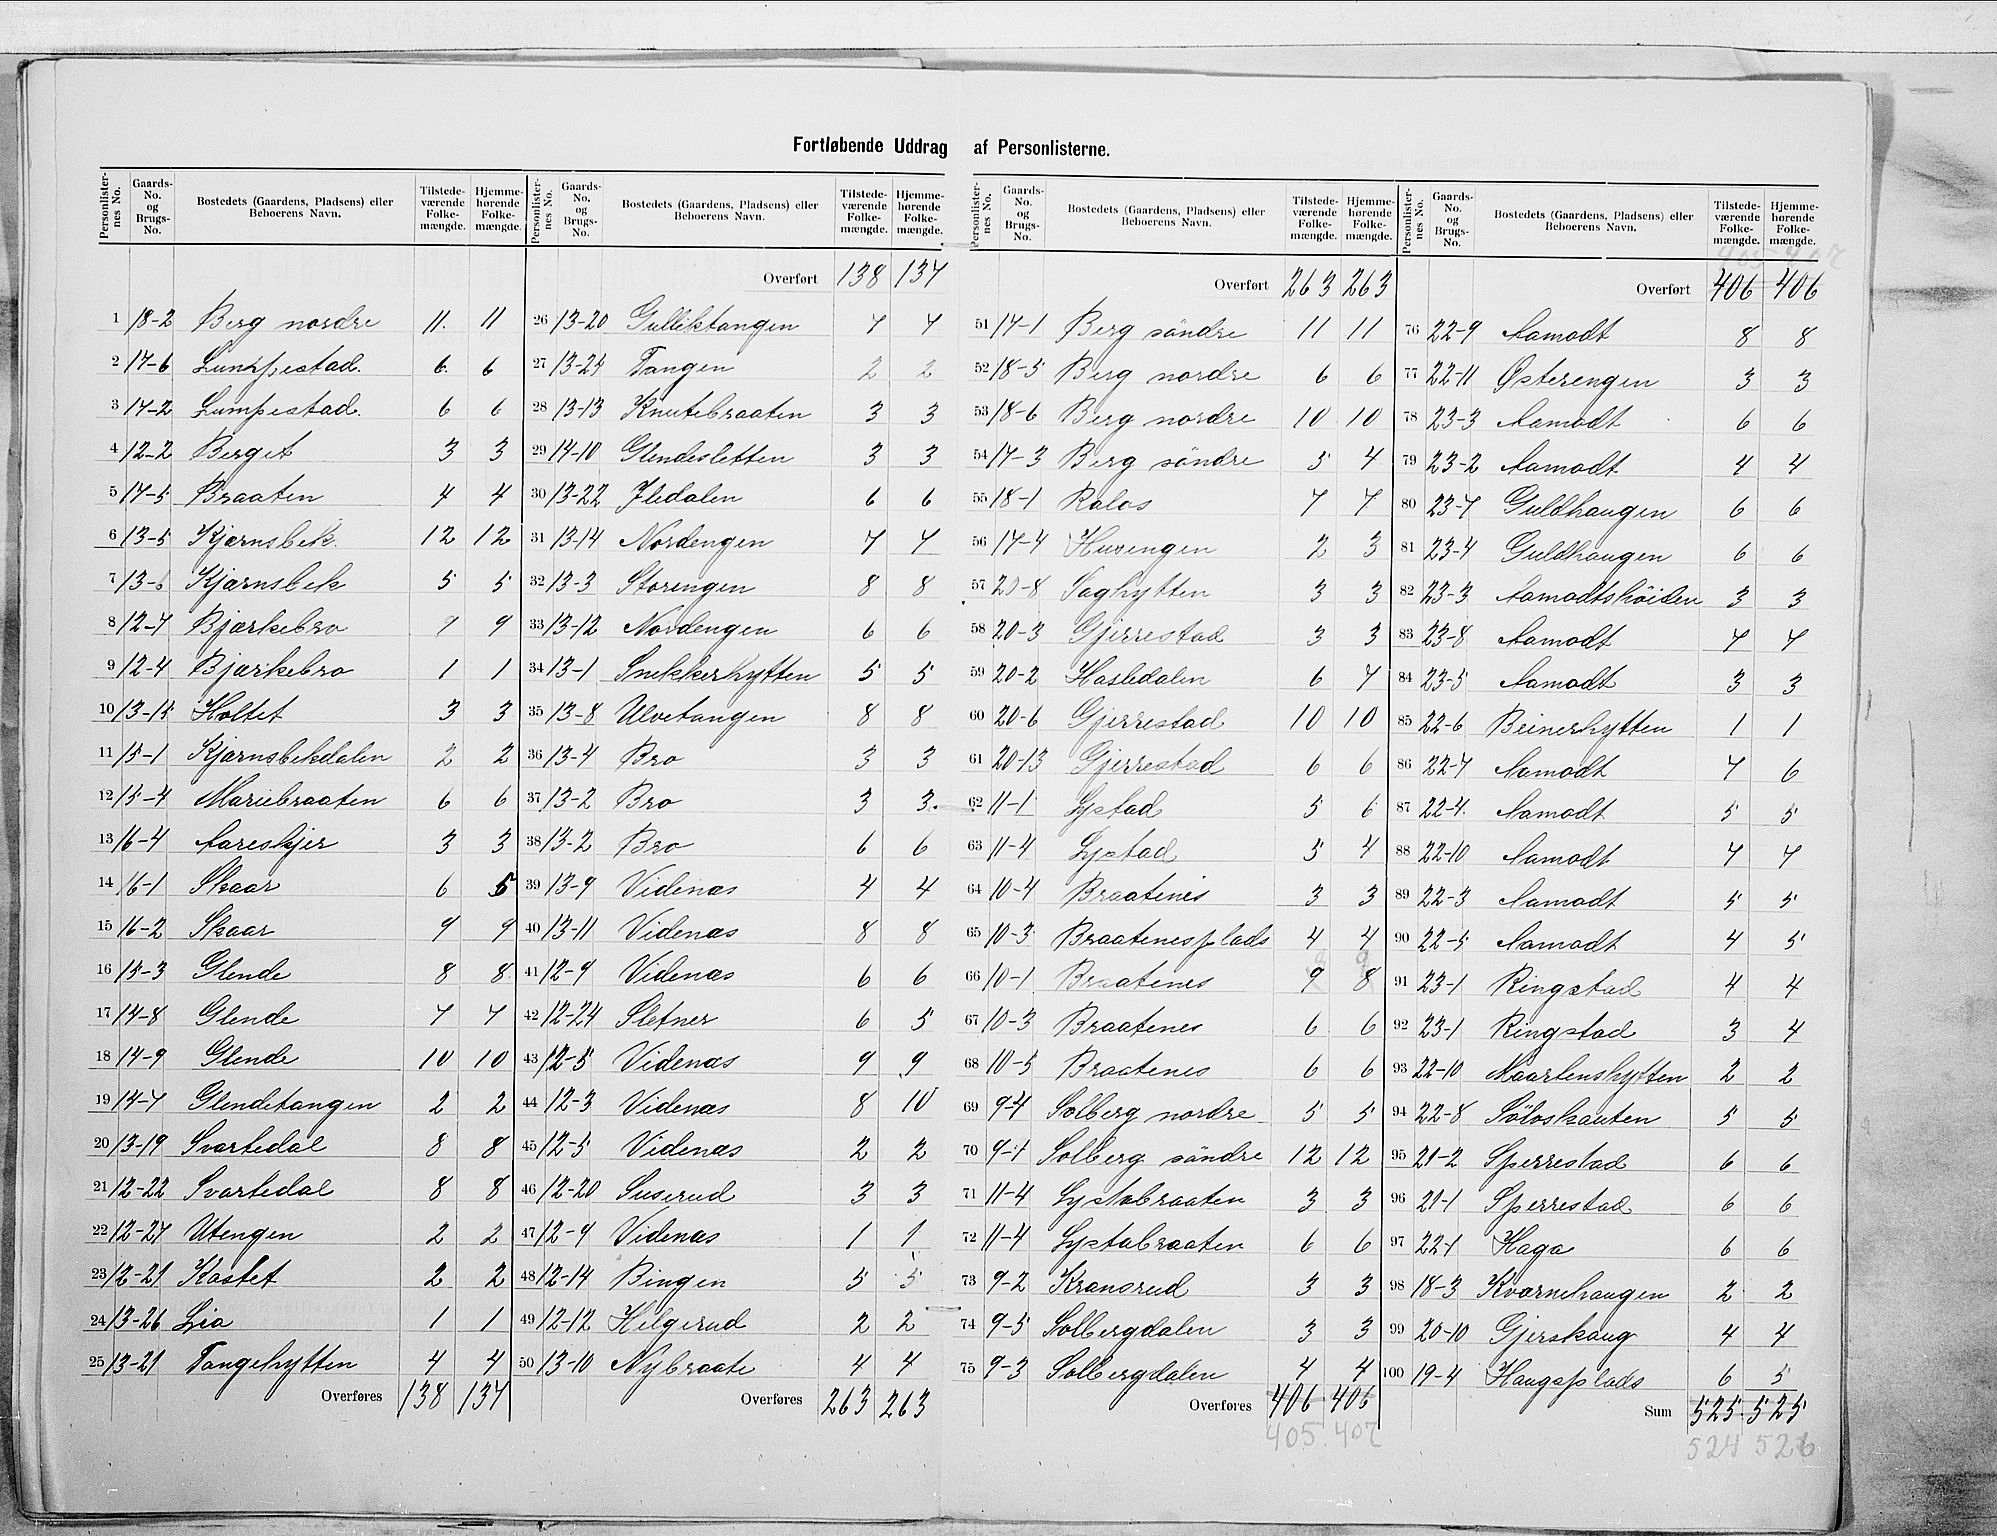 Fortløbende Uddrag af Personlisterne.
Personlister-nes No. | Gaards-No. og Brugs-No. | Bostedets (Gaardens, Pladsens) eller Beboerens Navn. | Tilstede-værende Folke-mængde. | Hjemme-hørende Folke-mængde.
1 18-2 Berg nordre 11. 11
2 17-6 Lumpestad. 6. 6
3 17-2 Lumpestad. 6 6
4 12-2 Berget 3 3
5 17-5 Braaten 4 4
6 13-5 Kjærnsbek. 12 12
7 13-6 Kjærnsbek 5 5
8 12-7 Bjærkebro 9 9
9 12-4 Bjærkebro 1 1
10 13-15 Holtet 3 3
11 15-1 Kjærnsbekdalen 2 2
12 15-4 Mariebraaten 6 6
13 16-4 Aareskjer 3 3
14 16-1 Skaar 6 5
15 16-2 Skaar 9 9
16 15-3 Glende 8 8
17 14-8 Glende 7 7
18 14-9 Glende 10 10
19 14-7 Glendetangen 2 2
20 13-19 Svartedal 8 8
21 12-22 Svartedal 8 8
22 12-27 Utengen 2 2
23 12-21 Kastet 2 2
24 13-26 Lia 1 1
25 13-21 Tangehytten 4 4
Overføres 138 137
Personlister-nes No. | Gaards-No. og Brugs-No. | Bostedets (Gaardens, Pladsens) eller Beboerens Navn. | Tilstede-værende Folke-mængde. | Hjemme-hørende Folke-mængde.
Overført 138 137
26 13-20 Gulliktangen 7 7
27 13-24 Tangen 2 2
28 13-13 Knutebraaten 3 3
29 14-10 Glendesletten 3 3
30 13-22 Iledalen 6 6
31 13-14 Nordengen 7 7
32 13-3 Storengen 8 8
33 13-12 Nordengen 6 6
34 13-1 Snekkerhytten 5 5
35 13-8 Ulvetangen 8 8
36 13-4 Bro 3 3
37 13-2 Bro 3 3.
38 13-2 Bro 6 6
39 13-9 Videnæs 4 4
40 13-11 Videnæs 8 8
41 12-9 Videnæs 6 6
42 12-24 Sletner 6 5
43 12-5 Videnæs 9 9
44 12-3 Videnæs 8 10
45 12-5 Videnæs 2 2
46 12-20 Suserud 3 3
47 12-9 Videnæs 1 1
48 12-14 Bingen 5 5
49 12-12 Helgerud 2 2
50 13-10 Nybraate 4 4
Overføres 263 263
Personlister-nes No. | Gaards-No. og Brugs-No. | Bostedets (Gaardens, Pladsens) eller Beboerens Navn. | Tilstede-værende Folke-mængde. | Hjemme-hørende Folke-mængde.
Overført 263 263
51 17-1 Berg söndre 11 11
52 18-5 Berg nordre 6 6
53 18-6 Berg nordre 10 10
54 17-3 Berg söndre 5 4
55 18-1 Ralos 7 7
56 17-4 Hurengen 2 3
57 20-8 Saghytten 3 3
58 20-3 Gjerrestad 3 3
59 20-2 Hasledalen 6 7
60 20-6 Gjerrestad 10 10
61 20-13 Gjerrestad 6 6
62 11-1 Lystad 5 6
63 11-4 Lystad 5 4
64 10-4 Braatenes 3 3
65 10-3 Braatenesplads 4 4
66 10-1 Braatenes 9 8
67 10-3 Braatenes 6 6
68 10-5 Braatenes 6 6
69 9-4 Solberg nordre 5 5
70 9-1 Solberg söndre 12 12
71 11-4 Lystabraaten 3 3
72 11-4 Lystabraaten 6 6
73 9-2 Kransrud 3 3
74 9-5 Solbergdalen 3 3
75 9-3 Solbergdalen 4 4
Overføres 406 406
405. 407
Personlister-nes No. | Gaards-No. og Brugs-No. | Bostedets (Gaardens, Pladsens) eller Beboerens Navn. | Tilstede-værende Folke-mængde. | Hjemme-hørende Folke-mængde.
405 407
Overført 406 406
76 22-9 Aamodt 8 8
77 22-11 Østerengen 3 3
78 23-3 Aamodt 6 6
79 23-2 Aamodt 4 4
80 23-7 Guldhaugen 6 6
81 23-4 Guldhaugen 6 6
82 23-3 Aamodtshöiden 3 3
83 23-8 Aamodt 7 7
84 23-5 Aamodt 3 3
85 22-6 Beinerhytten 1 1
86 22-7 Aamodt 7 6
87 22-4. Aamodt 5 5
88 22-10 Aamodt 7 7
89 22-3 Aamodt 5 5
90 22-5 Aamodt 4 5
91 23-1 Ringstad 4 4
92 23-1 Ringstad 3 4
93 22-10 Maartenshytten 2 2
94 22-8 Söloskauten 5 5
95 21-2 Sperrestad 6 6
96 21-1 Sperrestad 6 6
97 22-1 Haga 6 6
98 18-3 Kværnehaugen 2 2
99 20-10 Gjerskaug 4 4
100 19-4 Haugsplads 6 5
Sum 525. 525
524 526